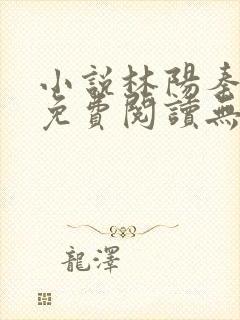 小說林陽秦
免費閱讀無
龍澤